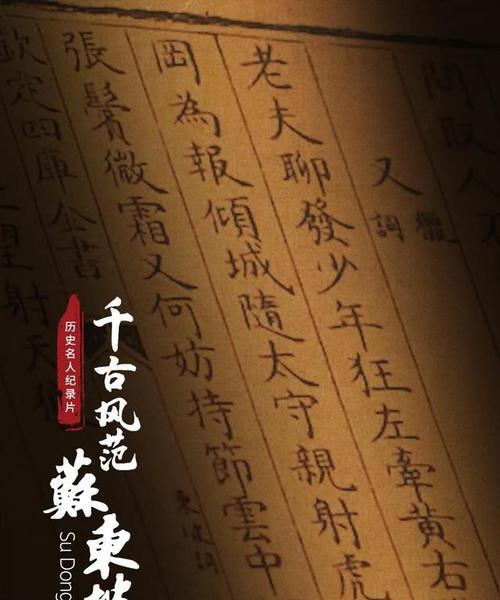 問取人
又
獵詞
老夫聊發少年狂左牽黃右
岡為報傾城隨太守親射虎
張鬢微霜又何妨持節雲中
欽定四庫全書
東坡詞
望射天
历史名人纪录片
千古风范
蘇東坡
Su Dong